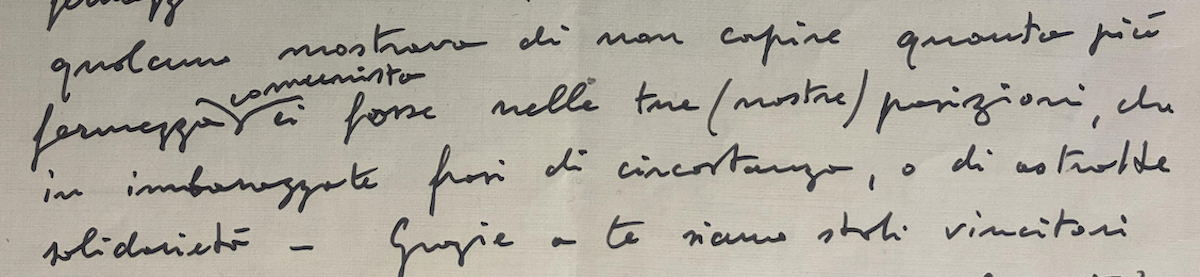 qualcuno mostrava di non capire quanta più
comunista
fermezza ci fosse nelle tue (nostre) posizioni, che
in imbarazzate frasi di circostanza, o di astratte
solidarietà – Grazie a te siamo stati vincitori